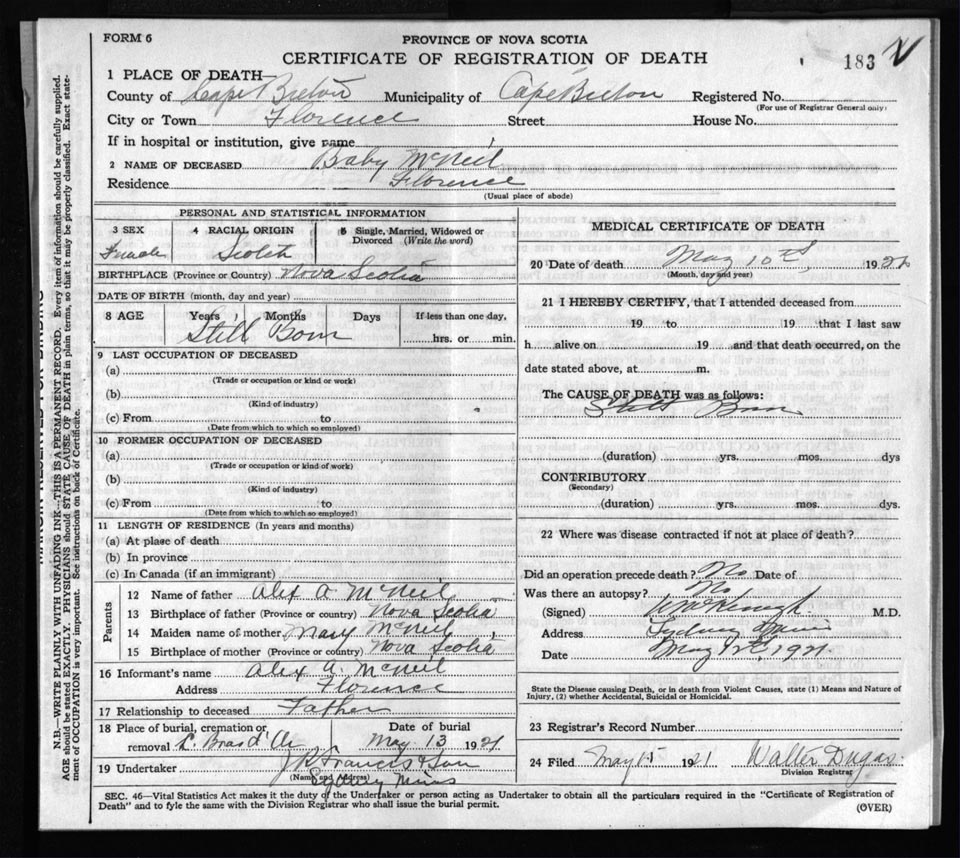 FORM 6
PROVINCE OF NOVA SCOTIA
CERTIFICATE OF REGISTRATION OF DEATH
183
1 PLACE OF DEATH
County of Cape Breton Municipality of Cape Breton Registered No.
(For use of Registrar General only)
City or Town Florence Street House No.
If in hospital or institution, give name
2 NAME OF DECEASED Baby McNeil
Residence Florence
(Usual place of abode)
PERSONAL AND STATISTICAL INFORMATION
3 SEX 4 RACIAL ORIGIN 5 Single, Married, Widowed or Divorced (Write the word)
Female Scotch
BIRTHPLACE (Province or Country) Nova Scotia
DATE OF BIRTH (month, day and year)
8 AGE Years Months Days If less than one day,
Still Born hrs. or min.
9 LAST OCCUPATION OF DECEASED
(a)
(Trade or occupation or kind or work)
(b)
(Kind of industry)
(c) From to
(Date from which to which so employed)
10 FORMER OCCUPATION OF DECEASED
(a)
(Trade or occupation or kind or work)
(b)
(Kind of industry)
(c) From to
(Date from which to which so employed)
11 LENGTH OF RESIDENCE (In years and months)
(a) At place of death
(b) In province
(c) In Canada (if an immigrant)
Parents
12 Name of father Alex A. McNeil
13 Birthplace of father (Province or country) Nova Scotia
14 Maiden name of mother Mary McNeil
15 Birthplace of mother (Province or country) Nova Scotia
16 Informant's name Alex A. McNeil
Address Florence
17 Relationship to deceased Father
18 Place of burial, cremation or Date of burial
removal L. Bras d'Or May 13 1921
19 Undertaker Francis & Son
(Name and address) Sydney Mines
MEDICAL CERTIFICATE OF DEATH
20 Date of death May 10th, 192
(Month, day and year)
21 I HEREBY CERTIFY, that I attended deceased from
19 to 19 that I last saw
h alive on 19 and that death occurred, on the
date stated above, at m.
The CAUSE OF DEATH was as follows:
Still Born
(duration) yrs. mos. dys
CONTRIBUTORY
(Secondary)
(duration) yrs. mos. dys.
22 Where was disease contracted if not at place of death?
Did an operation precede death? No Date of
Was there an autopsy? No
(Signed) M.D.
Address Sydney Mines
Date May 12th, 1921
State the Disease causing Death, or in death from Violent Causes, state (1) Means and Nature of
Injury, (2) whether Accidental, Suicidal or Homicidal.
23 Registrar's Record Number
24 Filed May 15 1921 Walter Dugas
Division Registrar
SEC. 46—Vital Statistics Act makes it the duty of the Undertaker or person acting as Undertaker to obtain all the particulars required in the "Certificate of Registration of
Death" and to fyle the same with the Division Registrar who shall issue the burial permit.
(OVER)
N.B.—WRITE PLAINLY WITH UNFADING INK—THIS IS A PERMANENT RECORD. Every item of information should be carefully supplied.
AGE should be stated EXACTLY. PHYSICIANS should STATE CAUSE OF DEATH in plain terms, so that it may be properly classified. Exact state-
ment of OCCUPATION is very important. See instructions on back of Certificate.